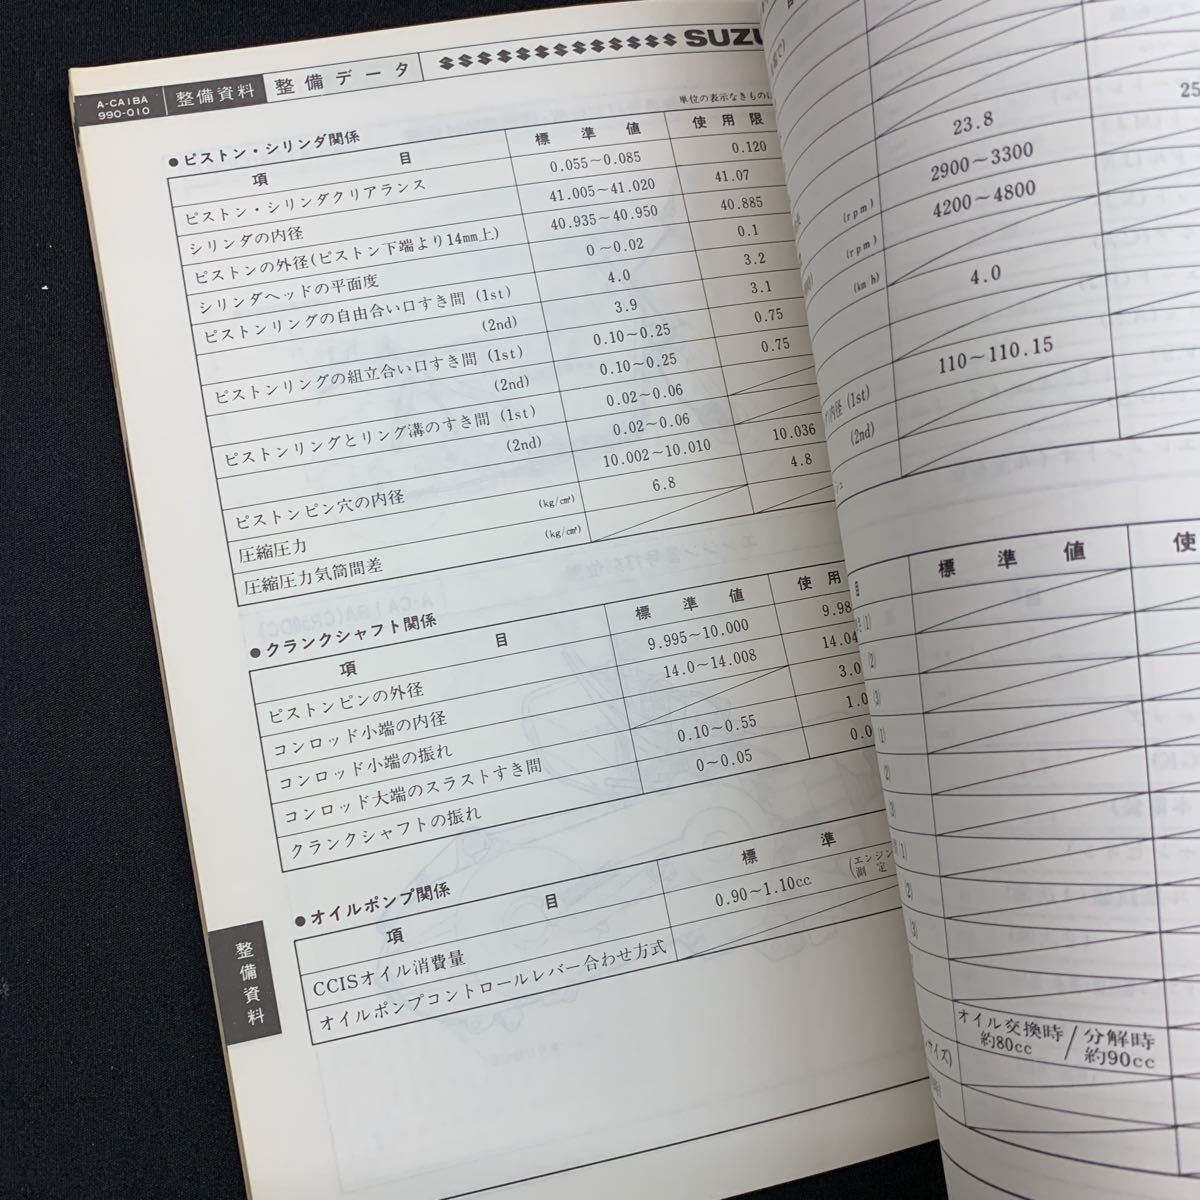 A-CA1BA
990-010
整備資料
整備データ
SUZU
単位の表示なきものは
●ピストン・シリンダ関係
項 目 標準値 使用限
ピストン・シリンダクリアランス 0.055～0.085 0.120
シリンダの内径 41.005～41.020 41.07
ピストンの外径(ピストン下端より14mm上) 40.935～40.950 40.885
シリンダヘッドの平面度 0～0.02 0.1
ピストンリングの自由合い口すき間 (1st) 4.0 3.2
(2nd) 3.9 3.1
ピストンリングの組立合い口すき間 (1st) 0.10～0.25 0.75
(2nd) 0.10～0.25 0.75
ピストンリングとリング溝のすき間 (1st) 0.02～0.06
(2nd) 0.02～0.06
ピストンピン穴の内径 10.002～10.010 10.036
圧縮圧力 (kg/cm²) 6.8 4.8
圧縮圧力気筒間差 (kg/cm²)
●クランクシャフト関係
項 目 標準値 使用
ピストンピンの外径 9.995～10.000 9.98
コンロッド小端の内径 14.0～14.008 14.04
コンロッド小端の振れ 3.0
コンロッド大端のスラストすき間 0.10～0.55 1.0
クランクシャフトの振れ 0～0.05 0.0
●オイルポンプ関係
項 目 標準
CCISオイル消費量 0.90～1.10cc (エンジン
測定
オイルポンプコントロールレバー合わせ方式
整備資料
25
23.8
(rpm) 2900～3300
(rpm) 4200～4800
(km/h)
4.0
110～110.15
内径 (1st)
(2nd)
目 標準値 使
(1)
(2)
(3)
(1)
(2)
(3)
(1)
(2)
(3)
オイル交換時
約80cc
/
分解時
約90cc
サイズ)